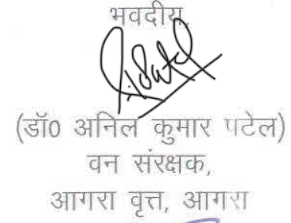 भवदीय,
(डॉ0 अनिल कुमार पटेल)
वन संरक्षक,
आगरा वृत्त, आगरा